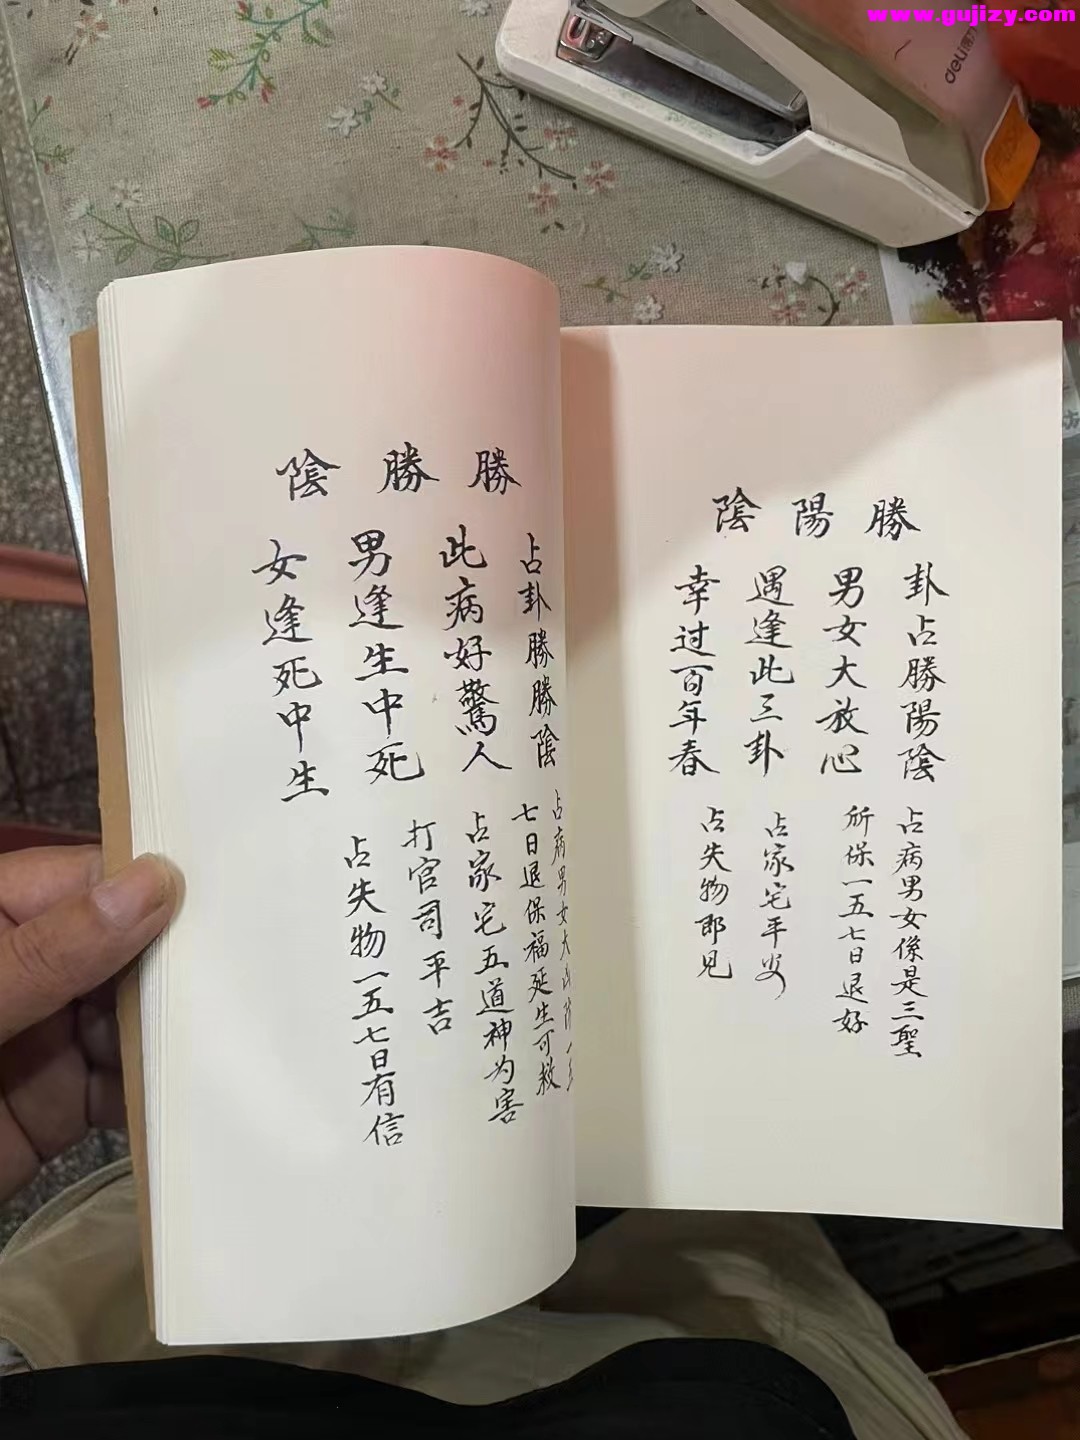 www.gujizy.com
deli得力
勝陽陰
卦占勝陽陰
男女大放心
遇逢此三卦
幸过百年春
占病男女係是三聖
所保一五七日退好
占家宅平安
占失物即見
勝勝陰
占卦勝勝陰
此病好驚人
男逢生中死
女逢死中生
占病男女大凶
七日退保福延生可救
占家宅五道神为害
打官司平吉
占失物一五七日有信